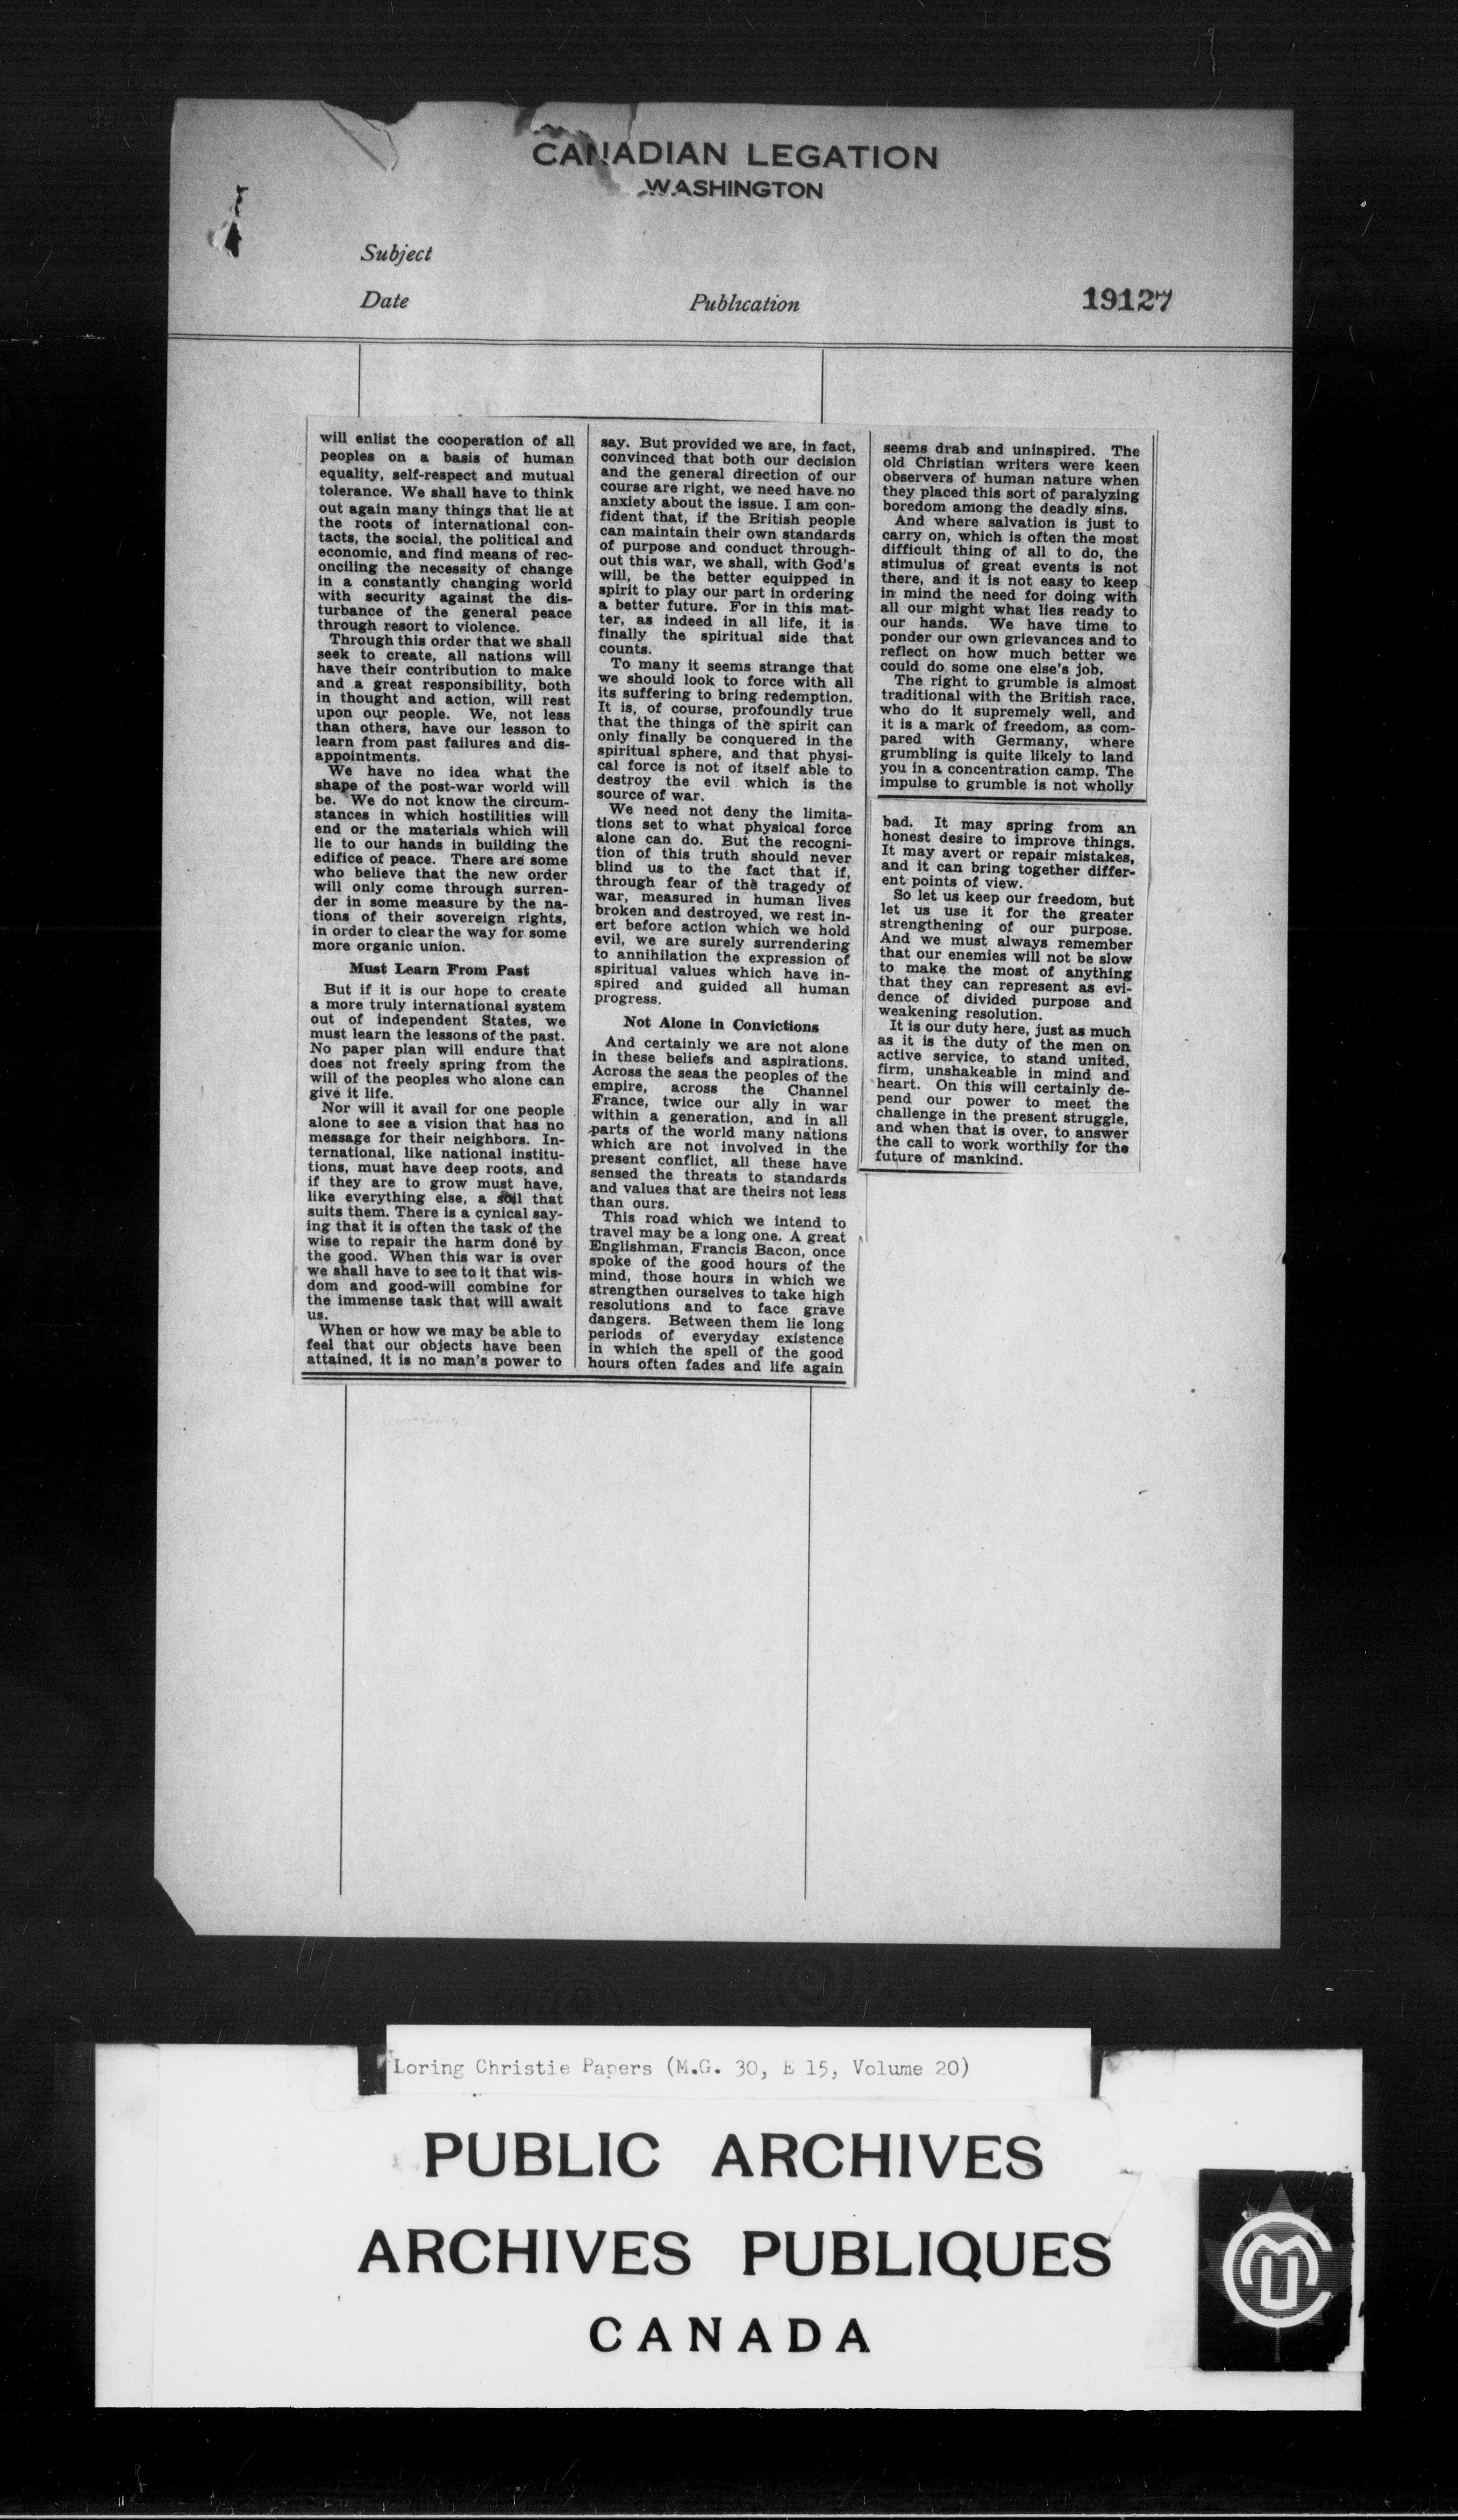 CANADIAN LEGATION
WASHINGTON
Subject
Date
Publication
19127
will enlist the cooperation of all
peoples on a basis of human
equality, self-respect and mutual
tolerance. We shall have to think
out again many things that lie at
the roots of international con-
tacts, the social, the political and
economic, and find means of rec-
onciling the necessity of change
in a constantly changing world
with security against the dis-
turbance of the general peace
through resort to violence.
Through this order that we shall
seek to create, all nations will
have their contribution to make
and a great responsibility, both
in thought and action, will rest
upon our people. We, not less
than others, have our lesson to
learn from past failures and dis-
appointments.
We have no idea what the
shape of the post-war world will
be. We do not know the circum-
stances in which hostilities will
end or the materials which will
lie to our hands in building the
edifice of peace. There are some
who believe that the new order
will only come through surren-
der in some measure by the na-
tions of their sovereign rights,
in order to clear the way for some
more organic union.
Must Learn From Past
But if it is our hope to create
a more truly international system
out of independent States, we
must learn the lessons of the past.
No paper plan will endure that
does not freely spring from the
will of the peoples who alone can
give it life.
Nor will it avail for one people
alone to see a vision that has no
message for their neighbors. In-
ternational, like national institu-
tions, must have deep roots, and
if they are to grow must have,
like everything else, a soil that
suits them. There is a cynical say-
ing that it is often the task of the
wise to repair the harm done by
the good. When this war is over
we shall have to see to it that wis-
dom and good-will combine for
the immense task that will await
us.
When or how we may be able to
feel that our objects have been
attained, it is no man's power to
say. But provided we are, in fact,
convinced that both our decision
and the general direction of our
course are right, we need have no
anxiety about the issue. I am con-
fident that, if the British people
can maintain their own standards
of purpose and conduct through-
out this war, we shall, with God's
will, be the better equipped in
spirit to play our part in ordering
a better future. For in this mat-
ter, as indeed in all life, it is
finally the spiritual side that
counts.
To many it seems strange that
we should look to force with all
its suffering to bring redemption.
It is, of course, profoundly true
that the things of the spirit can
only finally be conquered in the
spiritual sphere, and that physi-
cal force is not of itself able to
destroy the evil which is the
source of war.
We need not deny the limita-
tions set to what physical force
alone can do. But the recogni-
tion of this truth should never
blind us to the fact that if,
through fear of the tragedy of
war, measured in human lives
broken and destroyed, we rest in-
ert before action which we hold
evil, we are surely surrendering
to annihilation the expression of
spiritual values which have in-
spired and guided all human
progress.
Not Alone in Convictions
And certainly we are not alone
in these beliefs and aspirations.
Across the seas the peoples of the
empire, across the Channel
France, twice our ally in war
within a generation, and in all
parts of the world many nations
which are not involved in the
present conflict, all these have
sensed the threats to standards
and values that are theirs not less
than ours.
This road which we intend to
travel may be a long one. A great
Englishman, Francis Bacon, once
spoke of the good hours of the
mind, those hours in which we
strengthen ourselves to take high
resolutions and to face grave
dangers. Between them lie long
periods of everyday existence
in which the spell of the good
hours often fades and life again
seems drab and uninspired. The
old Christian writers were keen
observers of human nature when
they placed this sort of paralyzing
boredom among the deadly sins.
And where salvation is just to
carry on, which is often the most
difficult thing of all to do, the
stimulus of great events is not
there, and it is not easy to keep
in mind the need for doing with
all our might what lies ready to
our hands. We have time to
ponder our own grievances and to
reflect on how much better we
could do some one else's job.
The right to grumble is almost
traditional with the British race,
who do it supremely well, and
it is a mark of freedom, as com-
pared with Germany, where
grumbling is quite likely to land
you in a concentration camp. The
impulse to grumble is not wholly
bad. It may spring from an
honest desire to improve things.
It may avert or repair mistakes,
and it can bring together differ-
ent points of view.
So let us keep our freedom, but
let us use it for the greater
strengthening of our purpose.
And we must always remember
that our enemies will not be slow
to make the most of anything
that they can represent as evi-
dence of divided purpose and
weakening resolution.
It is our duty here, just as much
as it is the duty of the men on
active service, to stand united,
firm, unshakeable in mind and
heart. On this will certainly de-
pend our power to meet the
challenge in the present struggle,
and when that is over, to answer
the call to work worthily for the
future of mankind.
Loring Christie Papers (M.G. 30, E 15, Volume 20)
PUBLIC ARCHIVES
ARCHIVES PUBLIQUES
CANADA